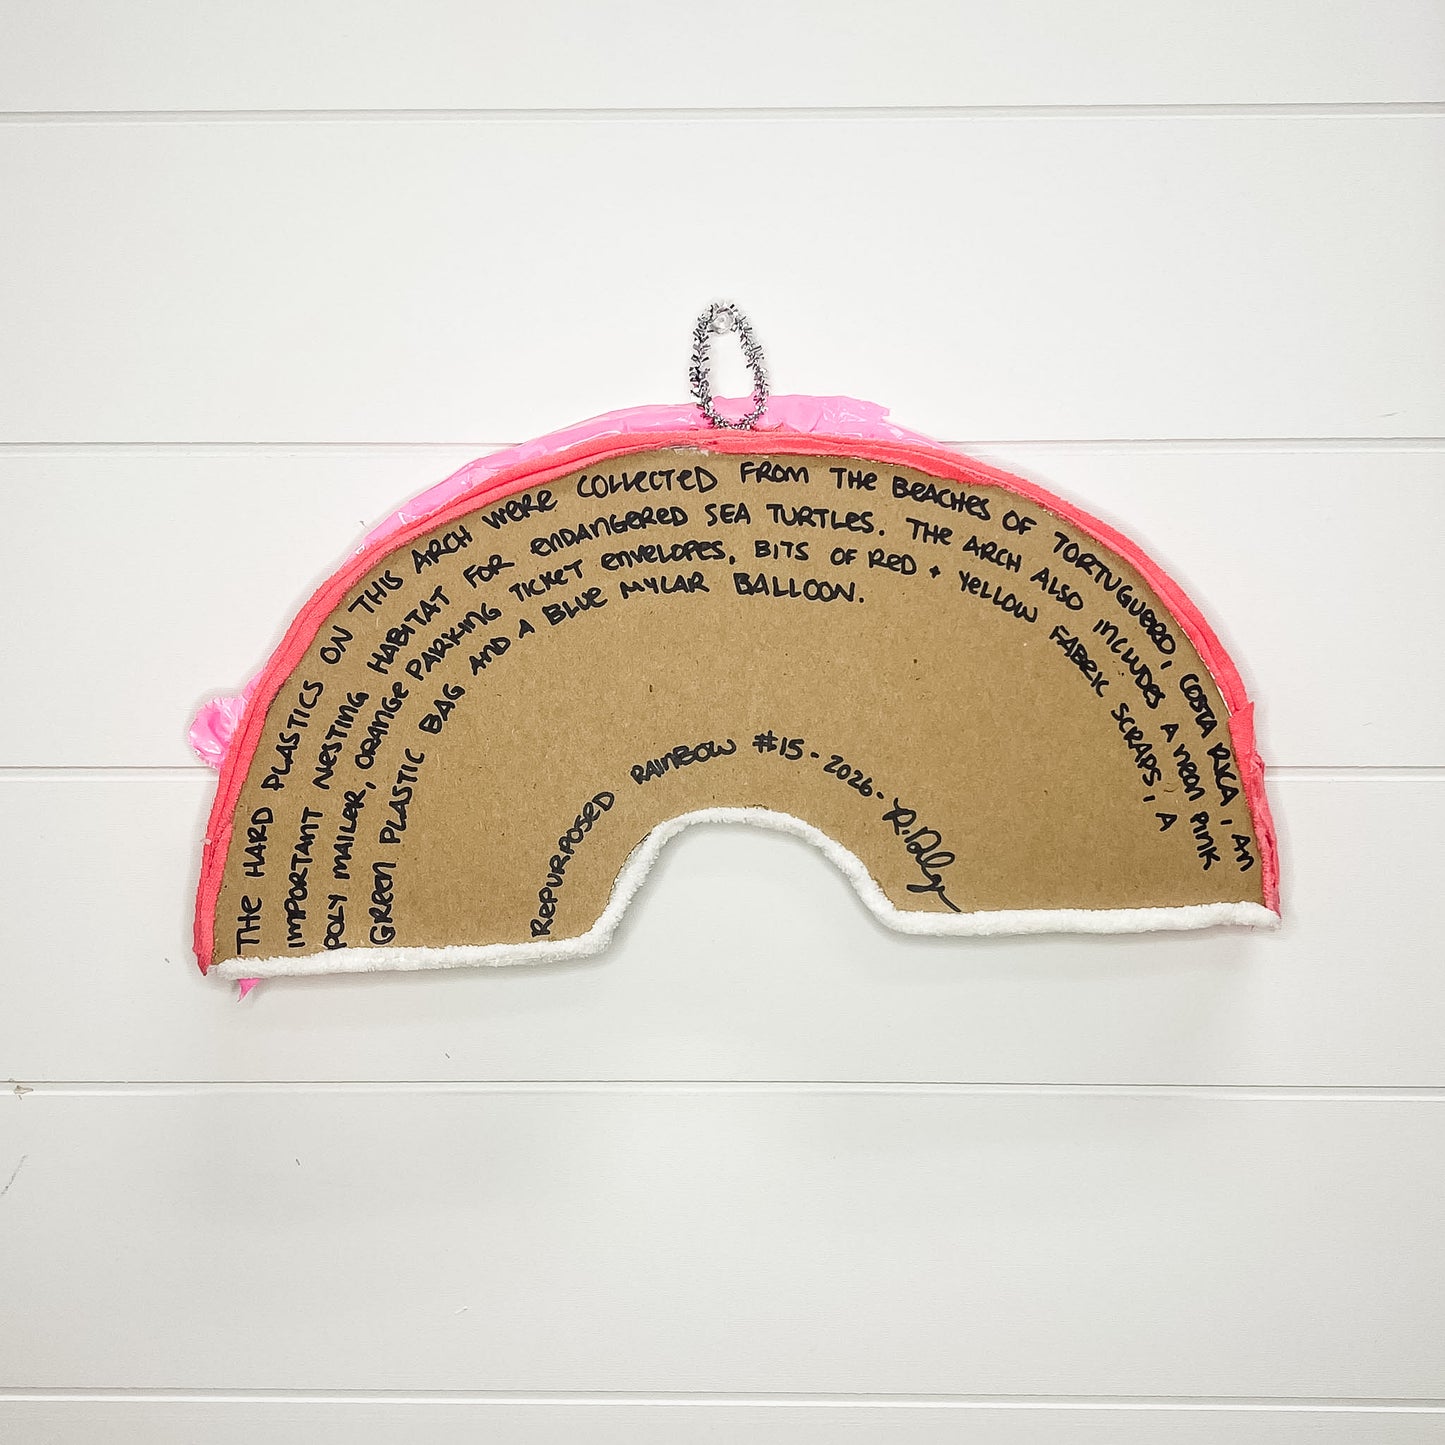 THE HARD PLASTICS ON THIS ARCH WERE COLLECTED FROM THE BEACHES OF TORTUGUERO, COSTA RICA, AN
IMPORTANT NESTING HABITAT FOR ENDANGERED SEA TURTLES. THE ARCH ALSO INCLUDES A NEON PINK
POLY MAILER, ORANGE PARKING TICKET ENVELOPES, BITS OF RED + YELLOW FABRIC SCRAPS, A
GREEN PLASTIC BAG AND A BLUE MYLAR BALLOON.
REPURPOSED RAINBOW #15 - 2026 -